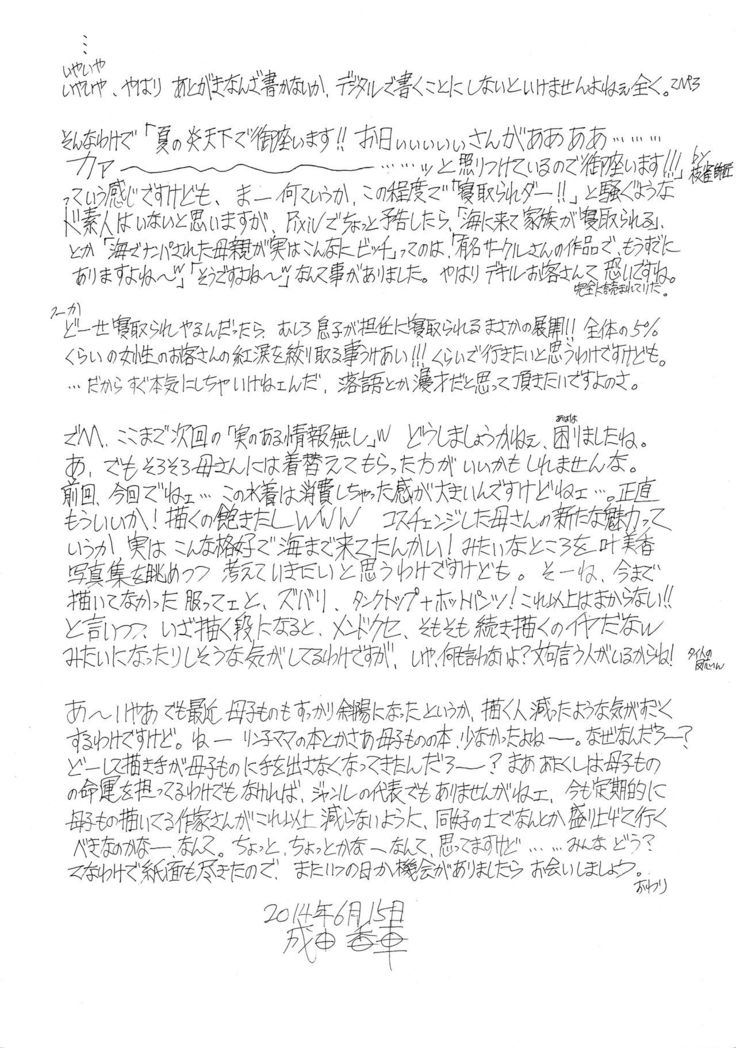 …
いやいや
いやいや、やはり あとがきなんざ書かないか、デジタルで書くことにしないといけませんよねぇ全く。
そんなわけで「夏の炎天下で御座います!! お日ぃぃぃぃぃさんがああああ………
カァー ……ッと照りつけているので御座います!!!」by 枝雀師匠
っていう感じですけども、まー何ていうか、この程度で「寝取られダー!!」と騒ぐような
ド素人はいないと思いますが、Pixivでちょっと予告したら、「海に来て家族が寝取られる」、
とか「海でナンパされた母親が実はこんなにビッチ」ってのは、「有名サークルさんの作品で、もうすでに
ありますよね〜」「そうですよね〜」なんて事がありました。やはりデキルお客さんて恐いですね。
完全に読まれていた。
つーか
どーせ寝取られやるんだったら、むしろ息子が担任に寝取られるまさかの展開!! 全体の5%
くらいの女性のお客さんの紅涙を絞り取る事うけあい!!! くらいで行きたいと思うわけですけども。
…だからすぐ本気にしちゃいけねェんだ、落語とか漫才だと思って頂きたいですよのさ。
でM、ここまで次回の「実のある情報無し」w どうしましょうかねぇ、困りましたね。
あ、でもそろそろ母さんには着替えてもらった方がいいかもしれませんな。
前回、今回でねェ… この水着は消費しちゃった感が大きいんですけどねェ…。正直
もういいか!描くの飽きたしwww コスチェンジした母さんの新たな魅力って
いうか 実は こんな格好で海まで来てたんかい!みたいなところを 叶美香
写真集を眺めつつ 考えていきたいと思うわけですけども。そーね、今まで
描いてなかった服ってェと、ズバリ、タンクトップ+ホットパンツ!これ以上はまからない!!
と言いつつ、いざ描く段になると、メンドクセ、そもそも続き描くのイヤだなw
みたいになったりしそうな気がしてるわけですが、いや、何も言わないよ?文句言う人がいるからね!
あ〜いやあでも最近 母子ものもすっかり斜陽になったというか、描く人減ったような気がすごく
するわけですけど。ねー リン子ママの本とかさあ母子ものの本、少なかったよねー。なぜなんだろー?
どーして描き手が母子ものに手を出さなくなってきたんだろー?まああたくしは母子もの
の命運を担ってるわけでもなければ、ジャンルの代表でもありませんがねェ、今も定期的に
母子もの描いてる作家さんがこれ以上減らないように、同好の士でなんとか盛り上げて行く
べきなのかなーなんて。ちょっと、ちょっとかなーなんて、思ってますけど……みんなどう?
てなわけで紙面も尽きたので、またいつの日か機会がありましたら お会いしましょう。
おわり
2014年6月15日
成田 香車